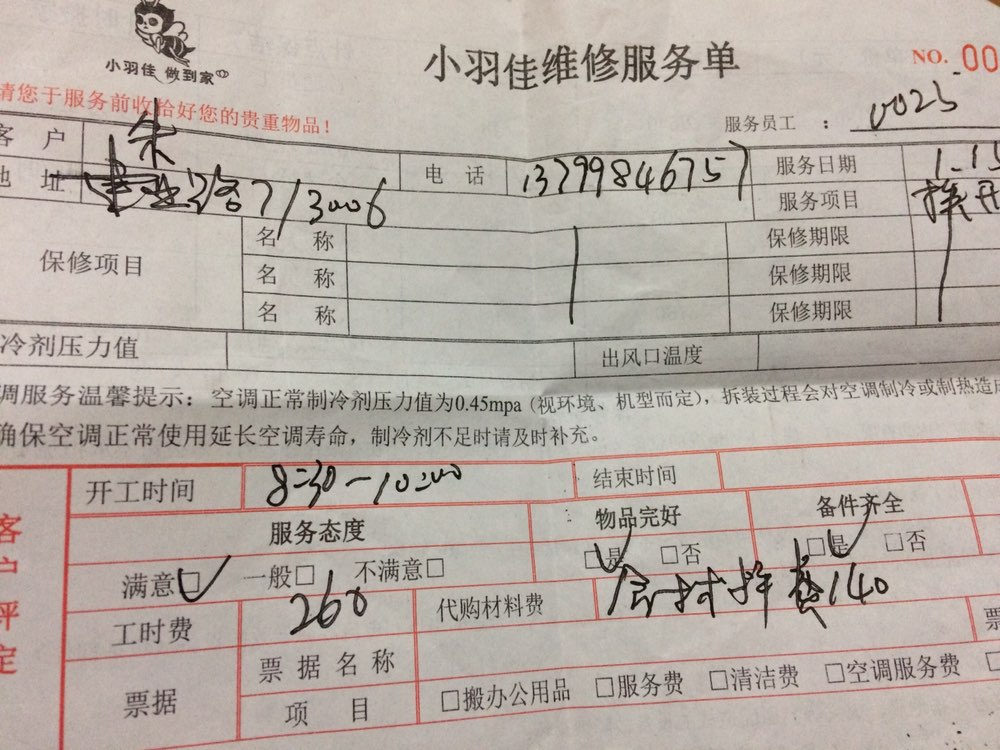 小羽佳 做到家
小羽佳维修服务单
NO. 00
请您于服务前收拾好您的贵重物品!
服务员工 : 0025
客 户 朱
地 址 7/3006
电 话 13799846757
服务日期 1.15
服务项目
保修项目
名 称 保修期限
名 称 保修期限
名 称 保修期限
冷剂压力值 出风口温度
调服务温馨提示：空调正常制冷剂压力值为0.45mpa (视环境、机型而定)，拆装过程会对空调制冷或制热造
确保空调正常使用延长空调寿命，制冷剂不足时请及时补充。
客户评定
开工时间 8:30-10:00 结束时间
服务态度 物品完好 备件齐全
满意□ 一般□ 不满意□ □是 □否 □是 □否
工时费 260 代购材料费 140
票
票据
票据名称
项 目 □搬办公用品 □服务费 □清洁费 □空调服务费